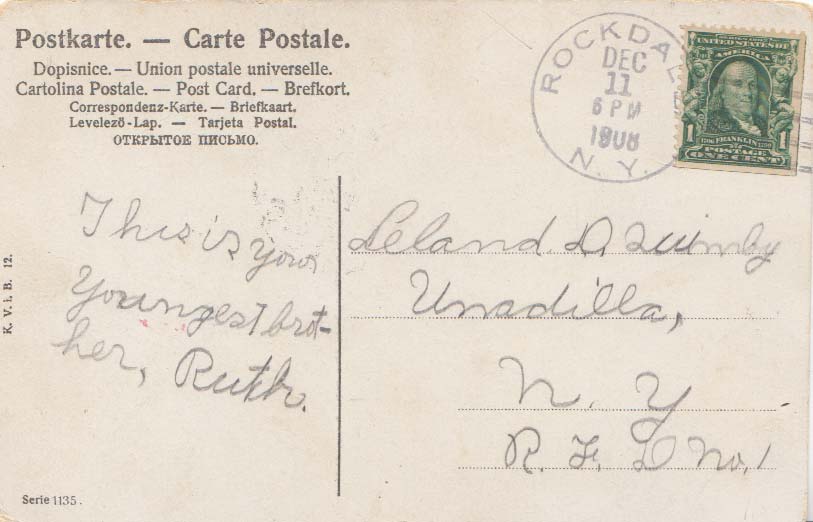 Postkarte. — Carte Postale.
Dopisnice. — Union postale universelle.
Cartolina Postale. — Post Card. — Brefkort.
Correspondenz-Karte. — Briefkaart.
Levelező-Lap. — Tarjeta Postal.
ОТКРЫТОЕ ПИСЬМО.
ROCKDALE
DEC
11
6 PM
1908
N. Y.
UNITED STATES OF
AMERICA
1 FRANKLIN 1
POSTAGE
ONE CENT
This is your
youngest brot-
her, Ruth.
Leland D Quimby
Unadilla,
N. Y
R. F. D No. 1
K. V. i B. 12.
Serie 1135.